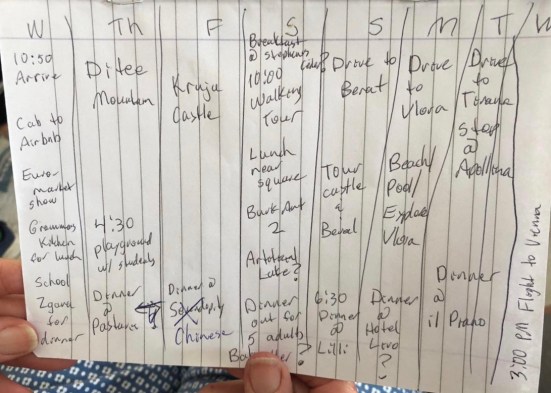 W Th F S S M T W
10:50
Arrive
Cab to
Airbnb
Euro
market
show
Grammas
Kitchen
for lunch
School
Zgara
for
dinner
Ditee
Mountain
4:30
Playground
w/ students
Dinner
@
Pastaria
Kruja
Castle
Dinner @
Chinese
Breakfast
@ Stephens
10:00
Walking
Tour
Lunch
near
square
Bunk Art
2
Artificial
Lake?
Dinner
out for
5 adults
?
Drive to
Berat
Tour
castle
&
Berat
6:30
Dinner
@
Lilli
Drive
to
Vlora
Beach/
Pool/
Explore
Vlora
Dinner
@
Hotel
Liro
?
Drive
to
Tirana
Stop
@
Apollina
Dinner
@
il Piano
3:00 PM Flight to Vienna